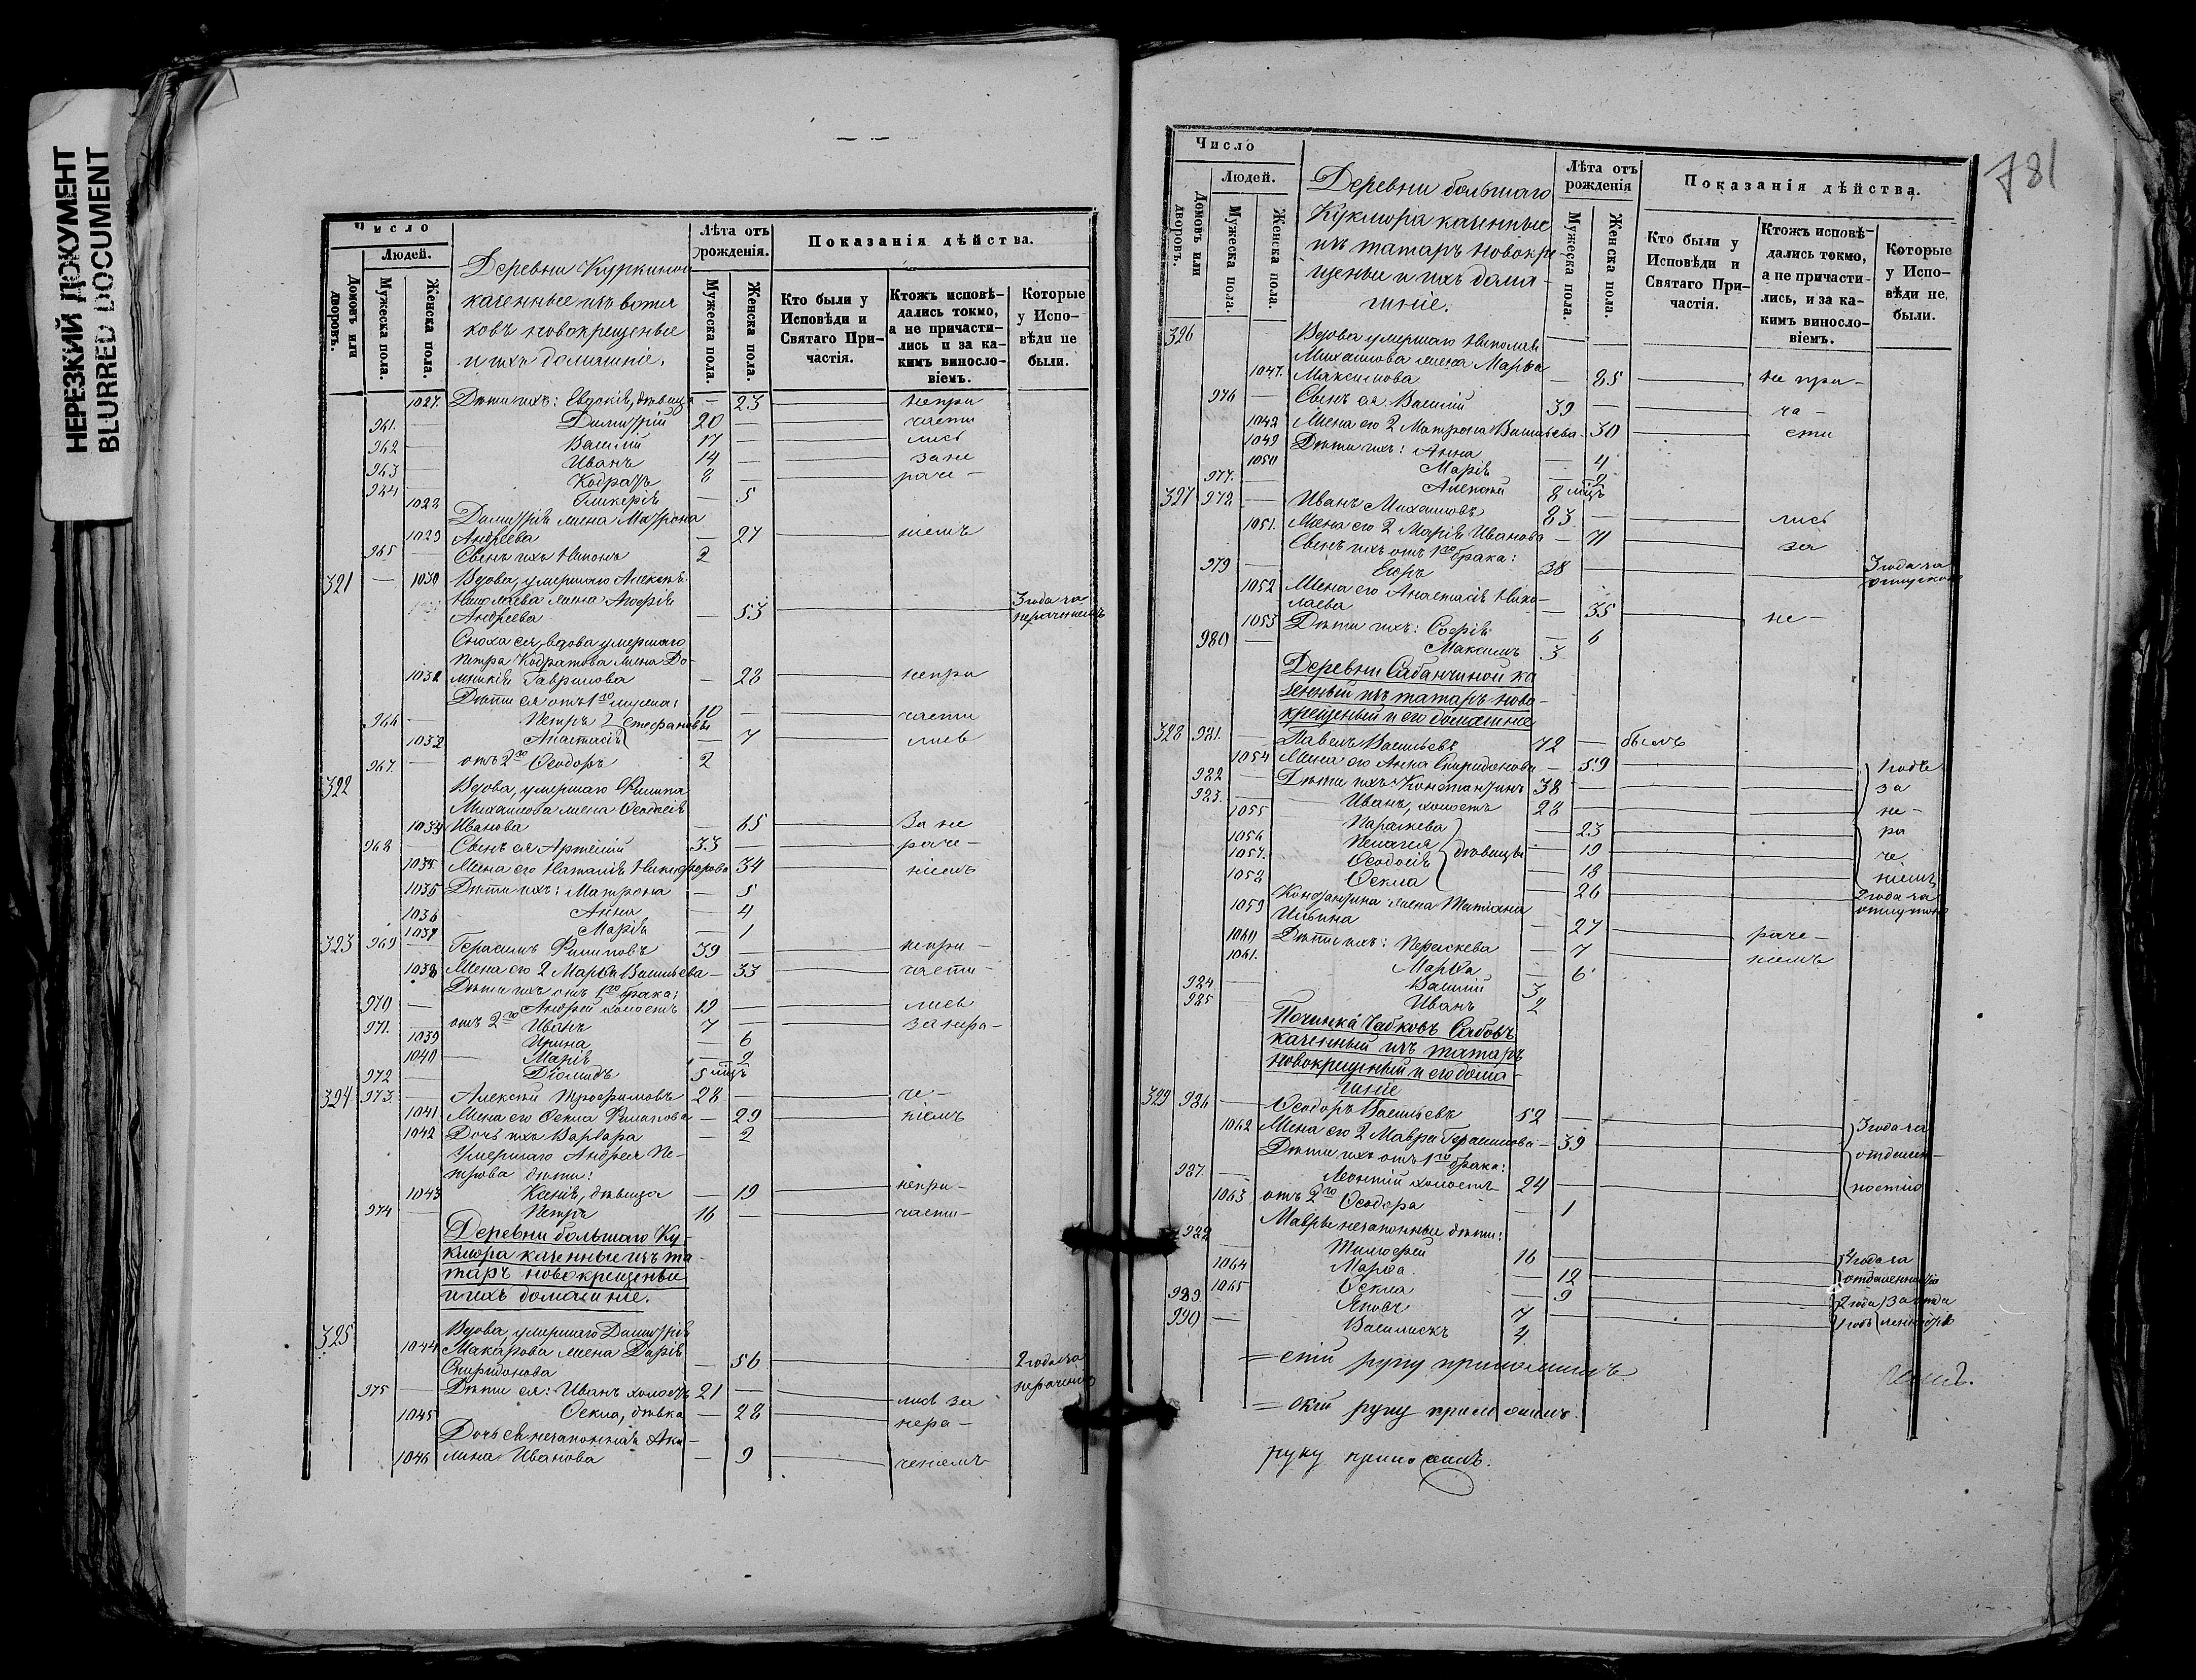 НЕРЕЗКИЙ ДОКУМЕНТ
BLURRED DOCUMENT
Число
Людей.
Домовъ или дворовъ.
Мужеска пола.
Женска пола.
Деревни Куркиной
казенные изъ вотя
ковъ новокрещеные
и ихъ домашніе.
Лѣта отъ рожденія.
Мужеска пола.
Женска пола.
Показанія дѣйства.
Кто были у Исповѣди и Святаго Причастія.
Ктожъ исповѣдались токмо, а не причастились и за какимъ винословіемъ.
Которые у Исповѣди не были.
1027. Дѣти ихъ: Евдокія, дѣвица — 23 непри
961. — Димитрій 20 — части
962 — Василій 17 — лись
963 — Иванъ 14 — зане
964 — Кодратъ 8 — раче-
1028 Гликерія — 5
Димитрія жена Матрона
1029 Андреева — 27 ніемъ
965 — Сынъ ихъ Никонъ 2
321 — 1030 Вдова, умершаго Алексѣя
Николаева жена Агафія
Андреева — 53 3 года за нераченіемъ
Сноха ея, вдова умершаго
Петра Кодратова жена До-
1031 мникія Гаврилова — 28 непри
Дѣти ея отъ 1го мужа:
966 — Петръ } Стефановы 10 — части
1032 Анастасія — 7 лись
967. — отъ 2го Ѳеодоръ 2
322 Вдова, умершаго Филипа
Михаилова жена Ѳеодосія
1034 Иванова — 65 За не
968 — Сынъ ея Артемій 33 — раче-
1035. Жена его Наталія Никифорова 34 ніемъ
1035 Дѣти ихъ: Матрона — 5
1036 Анна — 4
1037 Марія — 1
323 969 — Герасимъ Филиповъ 39 — непри-
1038 Жена его 2 Марѳа Васильева — 33 части-
Дѣти ихъ отъ 1го брака:
970 — Андрей холостъ 19 — лись
971. — отъ 2го Иванъ 7 — за нера-
1039 Ирина — 6
1040 — Марія — 2
972 — Діомидъ 5 мцъ
324 973. — Алексѣй Трофимовъ 28 — че-
1041 Жена его Ѳекла Филипова — 29 ніемъ
1042 Дочь ихъ Варвара — 2
Умершаго Андрея Пе-
трова дѣти:
1043 Ксенія, дѣвица — 19 непри-
974 — Петръ 16 — части-
Деревни большаго Ку-
кмора казенные изъ та-
таръ новокрещеные
и ихъ домашніе.
325 Вдова, умершаго Димитрія
1044 Макарова жена Дарія
Спиридонова — 56 2 года за нераченіе
975 — Дѣти ея: Иванъ холостъ 21 — лись за
1045 Ѳекла, дѣвка — 28 нера-
Дочь ея незаконная Аку-
1046 лина Иванова — 9 ченіемъ
781
Число
Людей.
Домовъ или дворовъ.
Мужеска пола.
Женска пола.
Деревни большаго
Кукмора казенные
изъ татаръ новокре-
щеные и ихъ дома-
шніе.
Лѣта отъ рожденія
Мужеска пола.
Женска пола.
Показанія дѣйства.
Кто были у Исповѣди и Святаго Причастія.
Ктожъ исповѣдались токмо, а не причастились, и за какимъ винословіемъ.
Которые у Исповѣди не были.
326 Вдова умершаго Николая
Михаилова жена Марѳа
1047. Максимова — 85 не при-
976 — Сынъ ея Василій 39 — ча-
1048 Жена его 2 Матрона Васильева 30 сти
1049 Дѣти ихъ: Анна — 4
1050 Марія — 2
977. — Алексѣй 8 мцъ
327 978 — Иванъ Михаиловъ 83 — лись
1051. Жена его 2 Марія Иванова — 71 за
Сынъ ихъ отъ 1го брака:
979 — Егоръ 38 3 года за отпускомъ
1052 Жена его Анастасія Нико-
лаева — 35 не-
1053 Дѣти ихъ: Софія — 6
980 — Максимъ 3
Деревни Сабанчиной ка
зенный изъ татаръ ново-
крещеный и его домашніе
328 981. — Павелъ Васильевъ 72 — былъ
1054 Жена его Анна Спиридонова — 59 1 годъ
982 — Дѣти ихъ: Константинъ 38 за
983. — Иванъ, холостъ 28 не-
1055 Параскева } — 23 ра
1056 Пелагея } дѣвицы — 19 че
1057. Ѳеодосія } — 18 ніемъ
1058 Ѳекла } — 26 2 года за
Константина жена Татіана отлучкою
1059 Ильина — 27 раче-
1060 Дѣти ихъ: Параскева — 7 ніемъ
1061. Марѳа — 6
984 — Василій 3
985 Иванъ 2
Починка Чабковъ Сабовъ
казенный изъ татаръ
новокрещеный и его дома-
шніе
329 986 — Ѳеодоръ Васильевъ 52 3 года за
1062 Жена его 2 Мавра Герасимова — 39
Дѣти ихъ отъ 1го брака: отдален-
987. — Леонтій холостъ 24 ностію
1063 отъ 2го Ѳеодора — 1
Мавры незаконные дѣти:
988 — Тимофей 16 4 года за
1064 Марѳа — 12 отдаленностію
1065 Ѳекла — 9
989 Яковъ 7
990 — Василискъ 4
= стій руку приложилъ.
= скій руку приложилъ.
руку приложилъ.